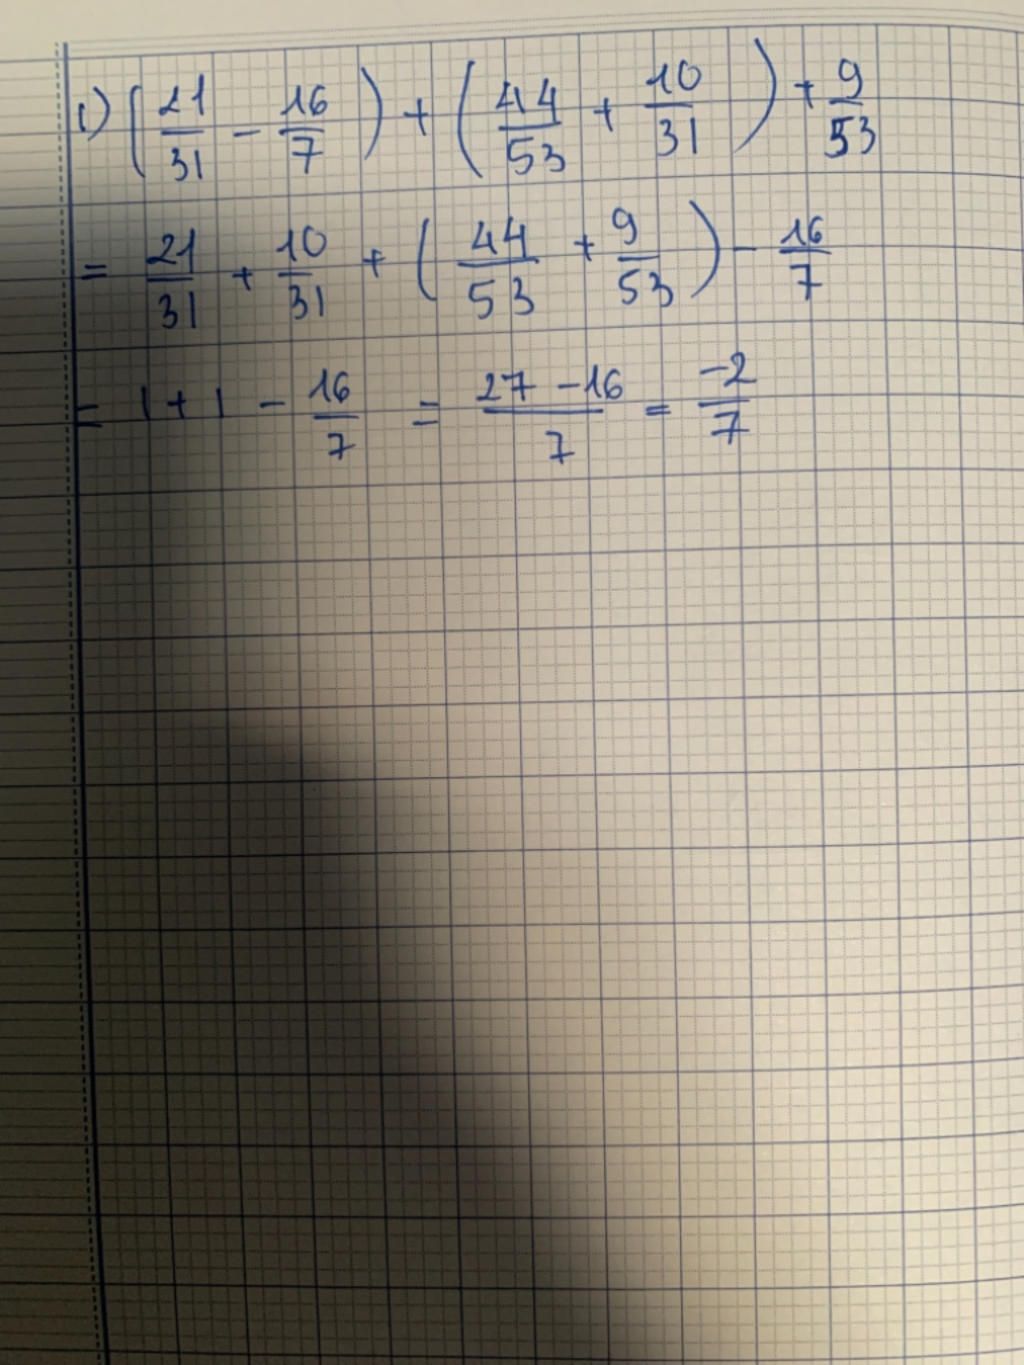 1) (21/31 - 16/7) + (44/53 + 10/31) + 9/53
= 21/31 + 10/31 + (44/53 + 9/53) - 16/7
= 1 + 1 - 16/7 = 27 - 16/7 = -2/7